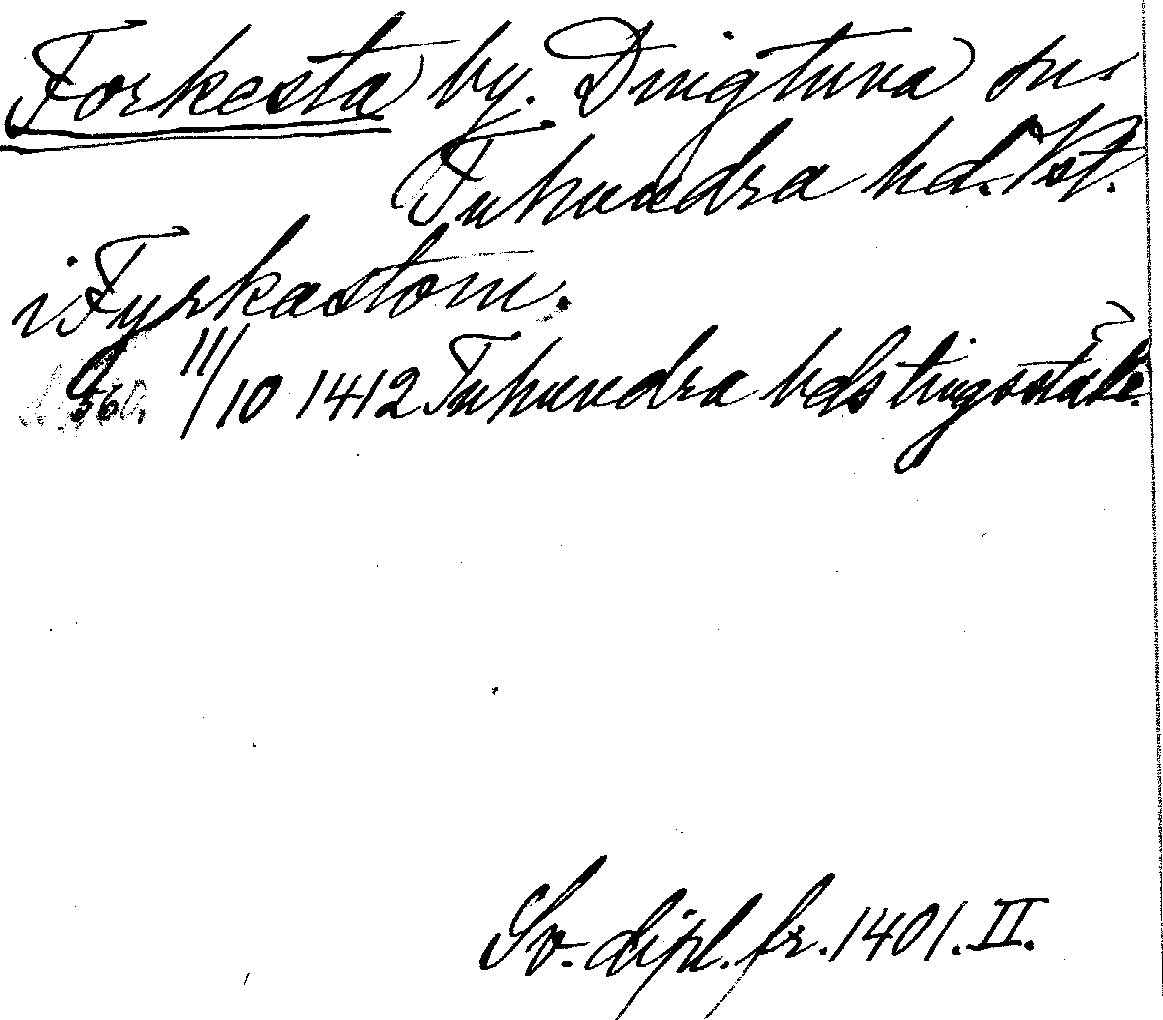 Forkesta by. Dingtuna sn.
Tuhundra hd. Vst.
i Fyrkastom.
11/10 1412 Tuhundra hds tingsställe.
Sv. dipl. fr. 1401. II.